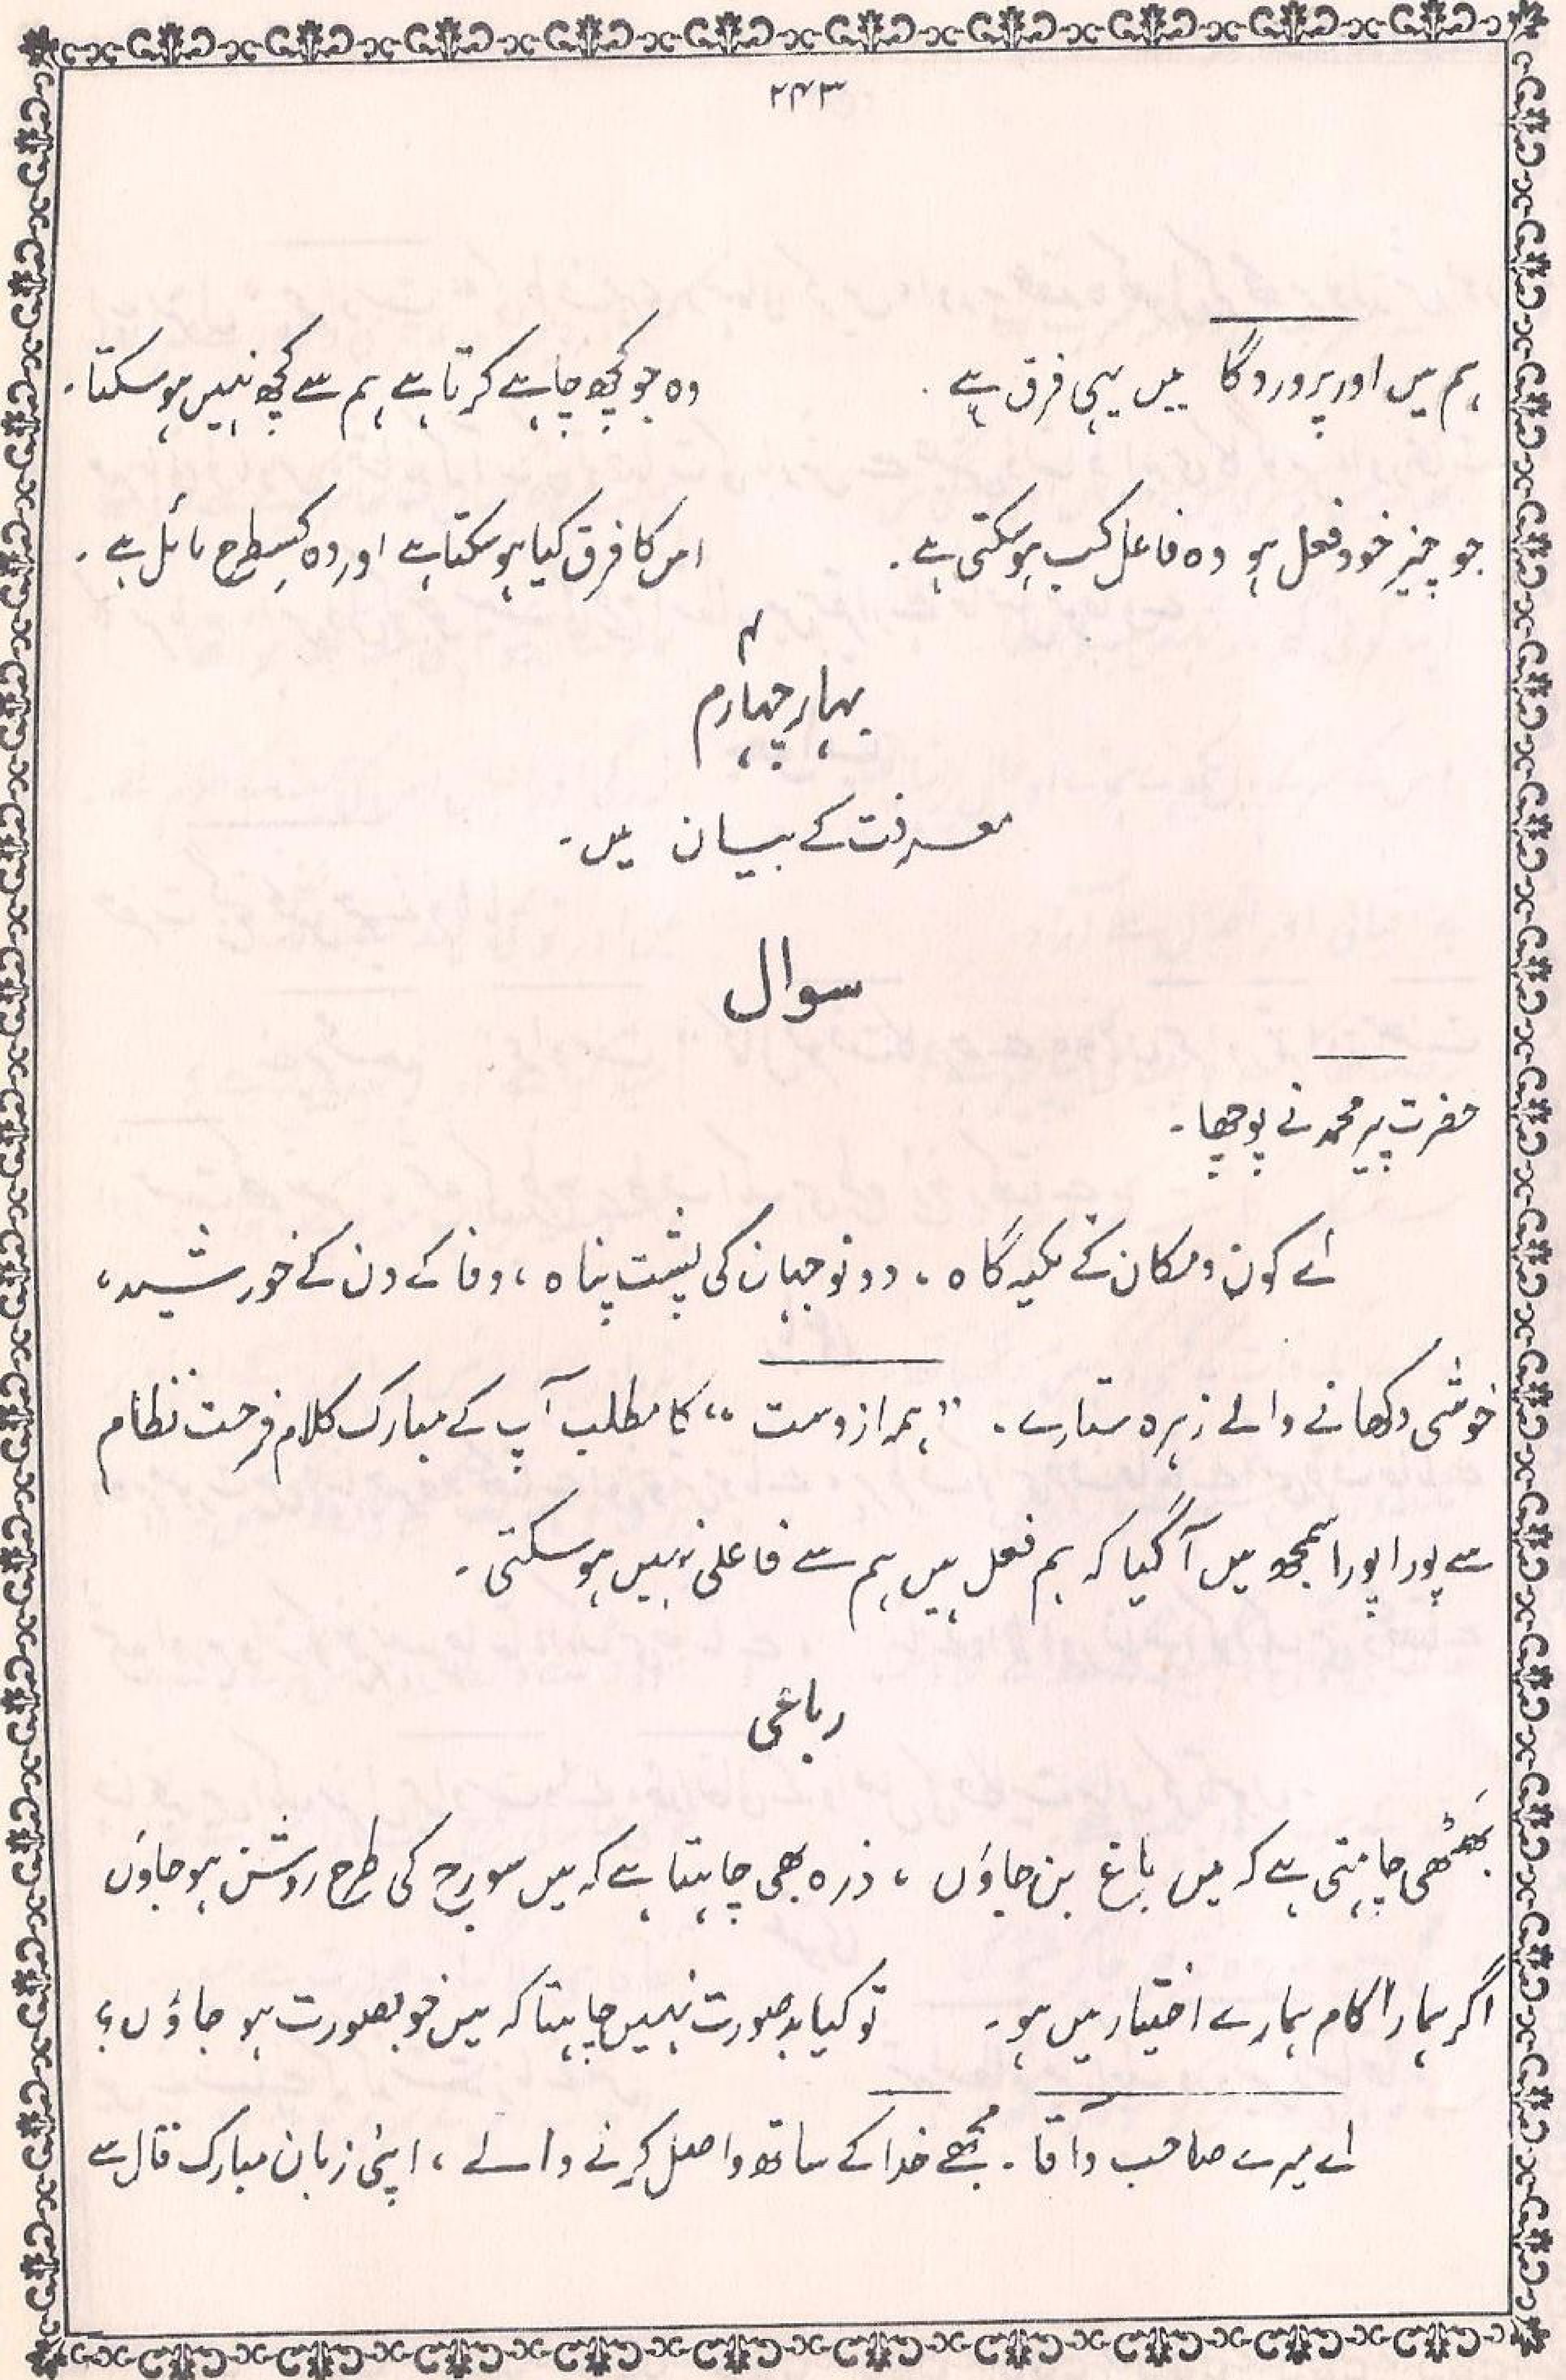 ۲۴۳
ہم میں اور پروردگا میں یہی فرق ہے۔ وہ جو کچھ چاہے کرتا ہے ہم سے کچھ نہیں ہوسکتا۔
جو چیز خود فعل ہو وہ فاعل کب ہوسکتی ہے۔ اس کا فرق کیا ہوسکتا ہے اور وہ کسطرح مائل ہے۔
۴
بہار چہارم
معرفت کے بیان میں۔
سوال
حضرت پیر محمد نے پوچھا۔
اے کون و مکان کے تکیہ گاہ، دونو جہان کی پشت پناہ، وفا کے دن کے خورشید،
خوشی دکھانے والے زہرہ ستارے۔ "ہمہ ازوست" کا مطلب آپ کے مبارک کلام فرحت نظام
سے پورا پورا سمجھ میں آگیا کہ ہم فعل ہیں ہم سے فاعلی نہیں ہوسکتی۔
رباعی
بھٹھی چاہتی ہے کہ میں باغ بن جاؤں، ذرہ بھی چاہتا ہے کہ میں سورج کی طرح روشن ہو جاوٗں
اگر ہمارا کام ہمارے اختیار میں ہو۔ تو کیا بدصورت نہیں چاہتا کہ میں خوبصورت ہو جاؤں؟
اے میرے صاحب و آقا۔ مجھے خدا کے ساتھ واصل کرنے والے، اپنی زبان مبارک قال سے